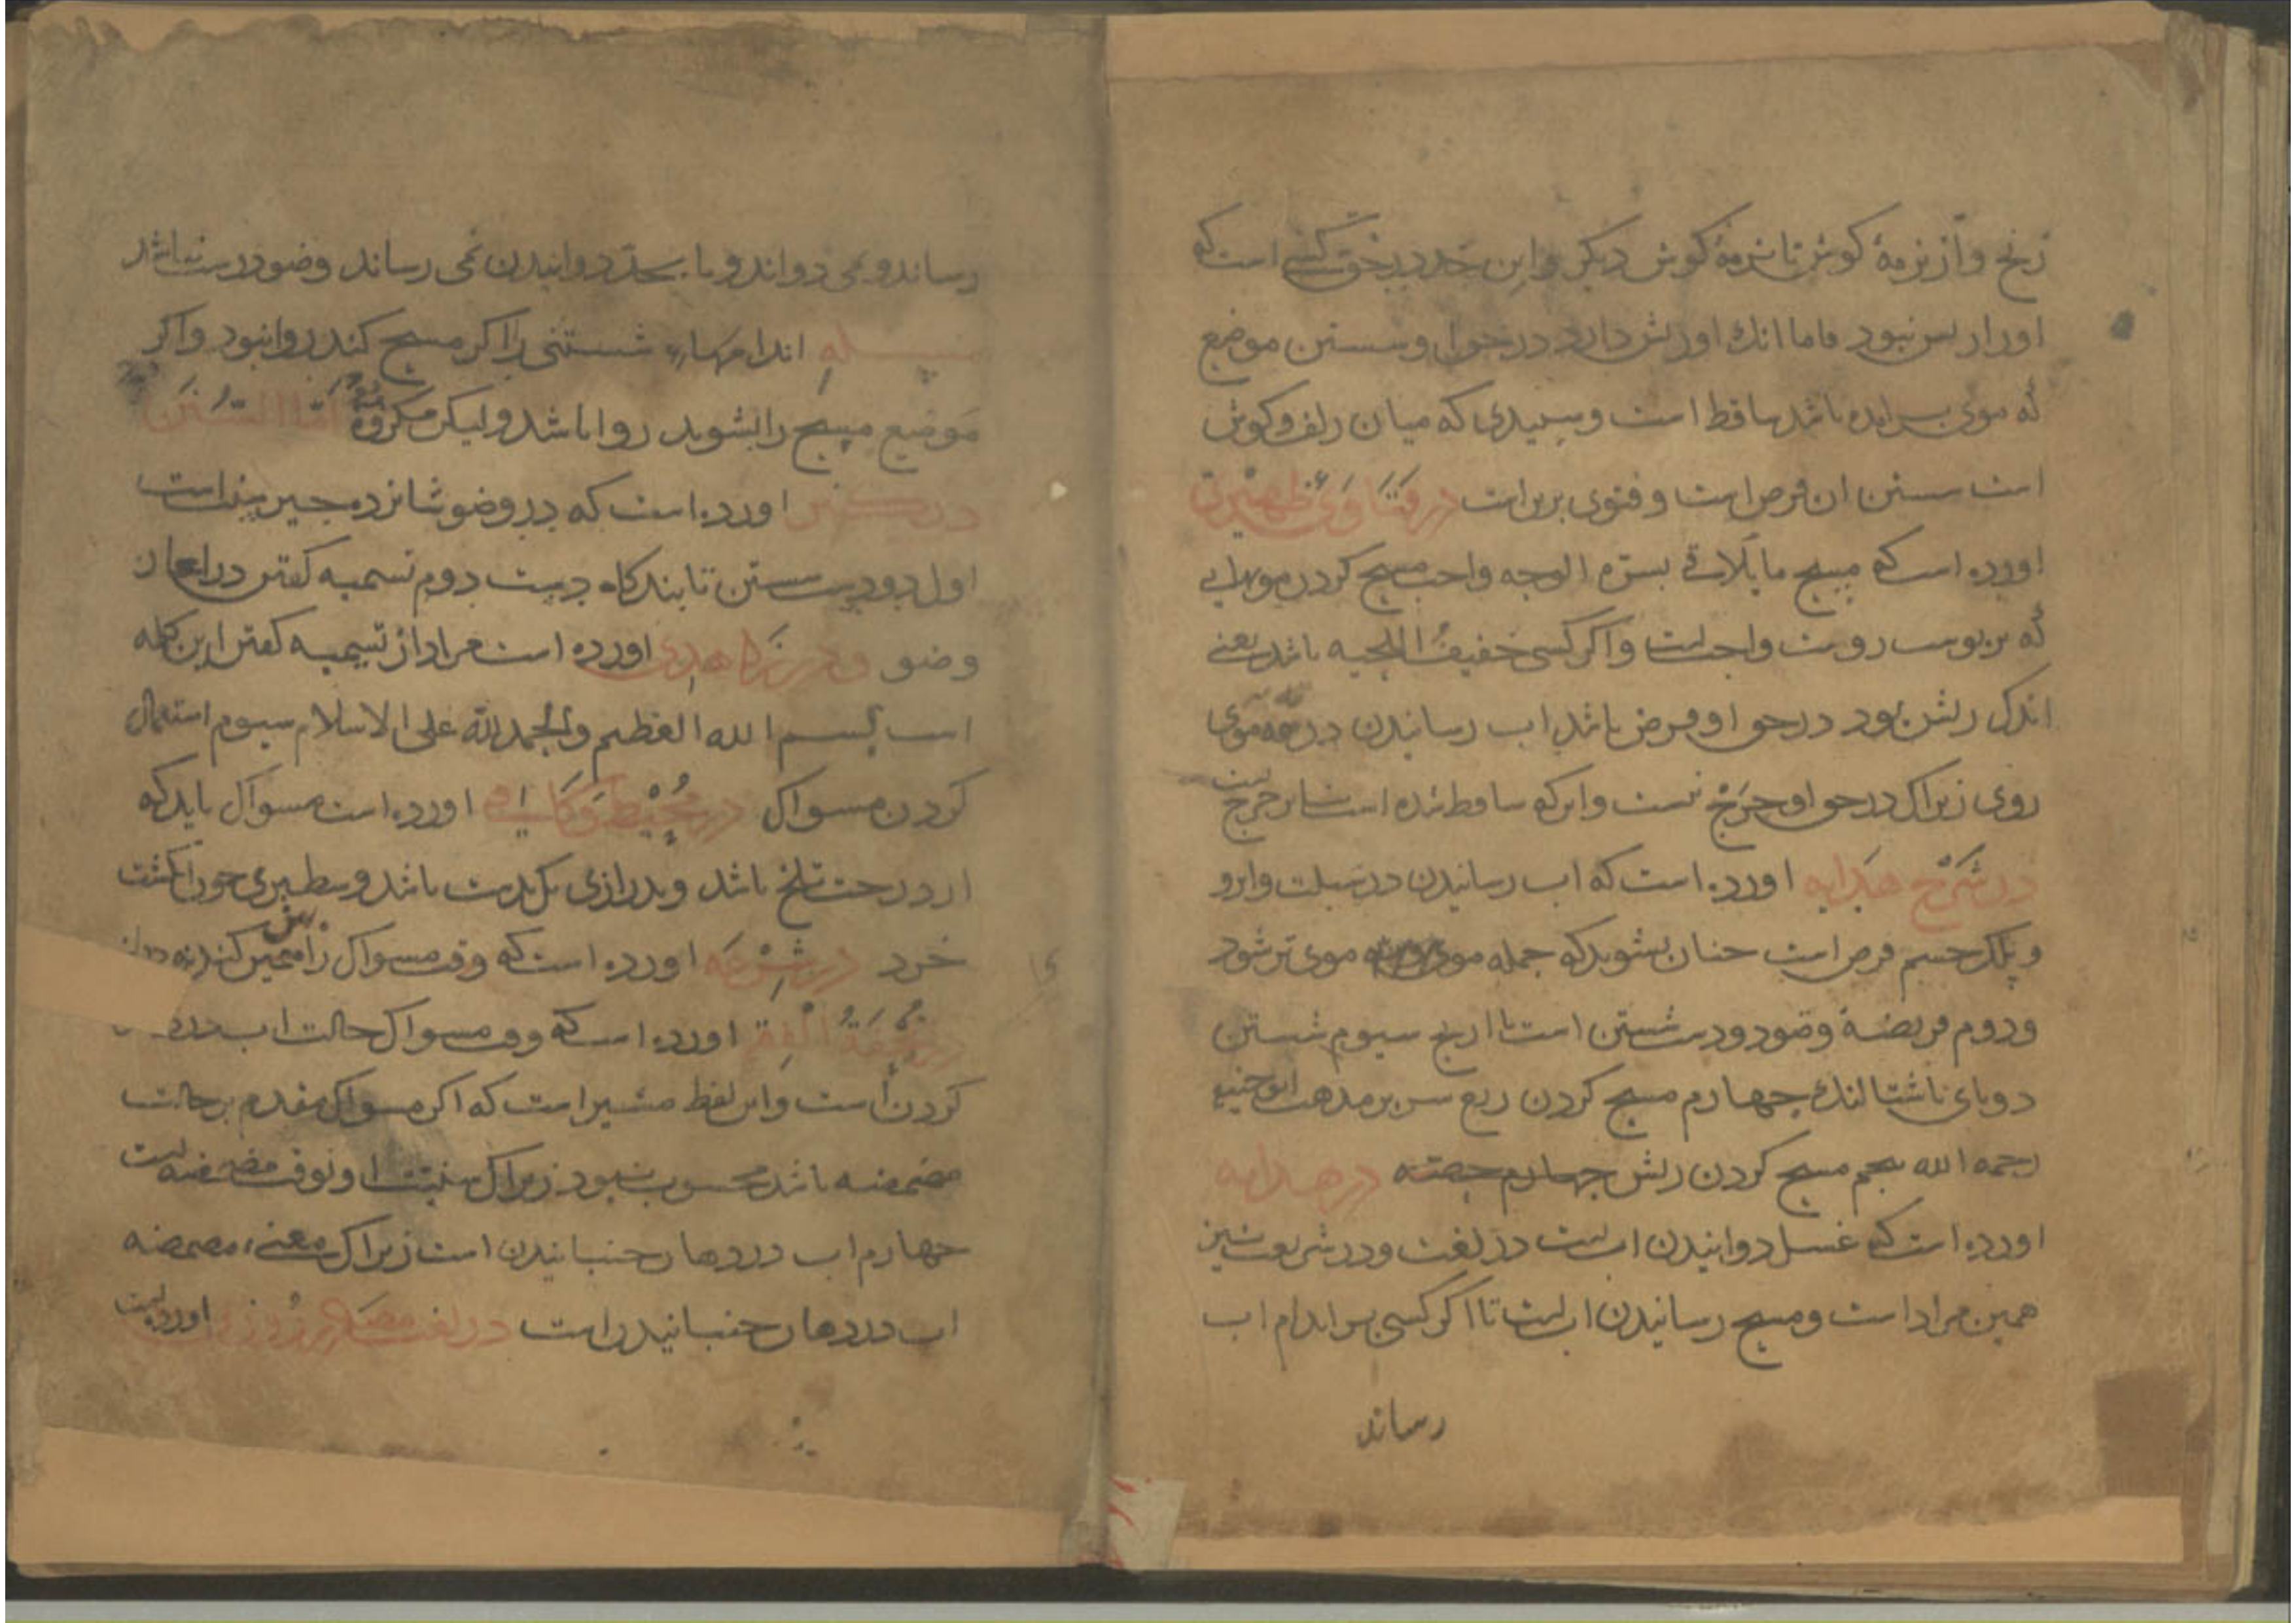 زنخ و از نرمهٔ کوش تا نرمهٔ کوش دیکر و این حد در حق کسی است که
او را ریش نبود فاما انک او ریش دارد در حق او شستن موضع
که موی بر امده باشد ساقط است و سپیدی که میان زلف و کوش
است شستن ان فرض است و فتوی برین است در فتاوی ظهیری
اورده است که مسح ما یلاقی بشرة الوجه واجب مسح کردن مویهایی
که بر پوست رویست واجبست و اکر کسی خفیف اللحیه باشد یعنی
اندک ریش بود در حق او فرض باشد اب رسانیدن در موی
روی زیراک در حق او حرج نیست و انکه ساقط شده است بنابر حرجست
در شرح هدایه اورده است که اب رسانیدن در سبلت و ابرو
و پلک چشم فرض است چنان بشوید که جمله موی موی تر شود
و دوم فریضهٔ وضو دو دست شستن است تا ارنج سیوم شستن
دو پای تا شتالنک چهارم مسح کردن ربع سر بر مذهب ابو حنیفه
رحمه الله پنجم مسح کردن ریش چهارم حصه در هدایه
اورده است که غسل دوانیدن ابست در لغت و در شریعت نیز
همین مراد است و مسح رسانیدن ابست تا اکر کسی بر اندام اب
رساند
رساند و می دواند و یا بحد دوانیدن نمی رساند وضو درست نباشد
مسله اندامهاء شستنی را اکر مسح کند روا نبود و اکر
موضع مسح را بشوید روا باشد ولیکن مکروه اما السنن
اورده است که در وضو شانزده چیز سنت است
اول دو دست شستن تا بندکاه دست دوم تسمیه کفتن در اغاز
وضو و در زاهدی اورده است مراد از تسمیه کفتن این کلمه
است بسم الله العظیم والحمد لله علی الاسلام سیوم استعمال
کردن مسواک در محیط و کافی اورده است مسواک باید که
از درخت تلخ باشد و بدرازی یک بدست باشد و سطبری چون انکشت
خرد در شرعه اورده است که وقت مسواک را
در تحفة الفقه اورده است که وقت مسواک حالت اب در
کردن است و این لفظ مشیر است که اکر مسواک مقدم بر حالت
مضمضه باشد محسوب نبود زیراک سنیت او بوقت مضمضه است
چهارم اب در دهان جنبانیدن است زیراک معنیء مضمضه
اب در دهان جنبانیدن است در لغت اورده است